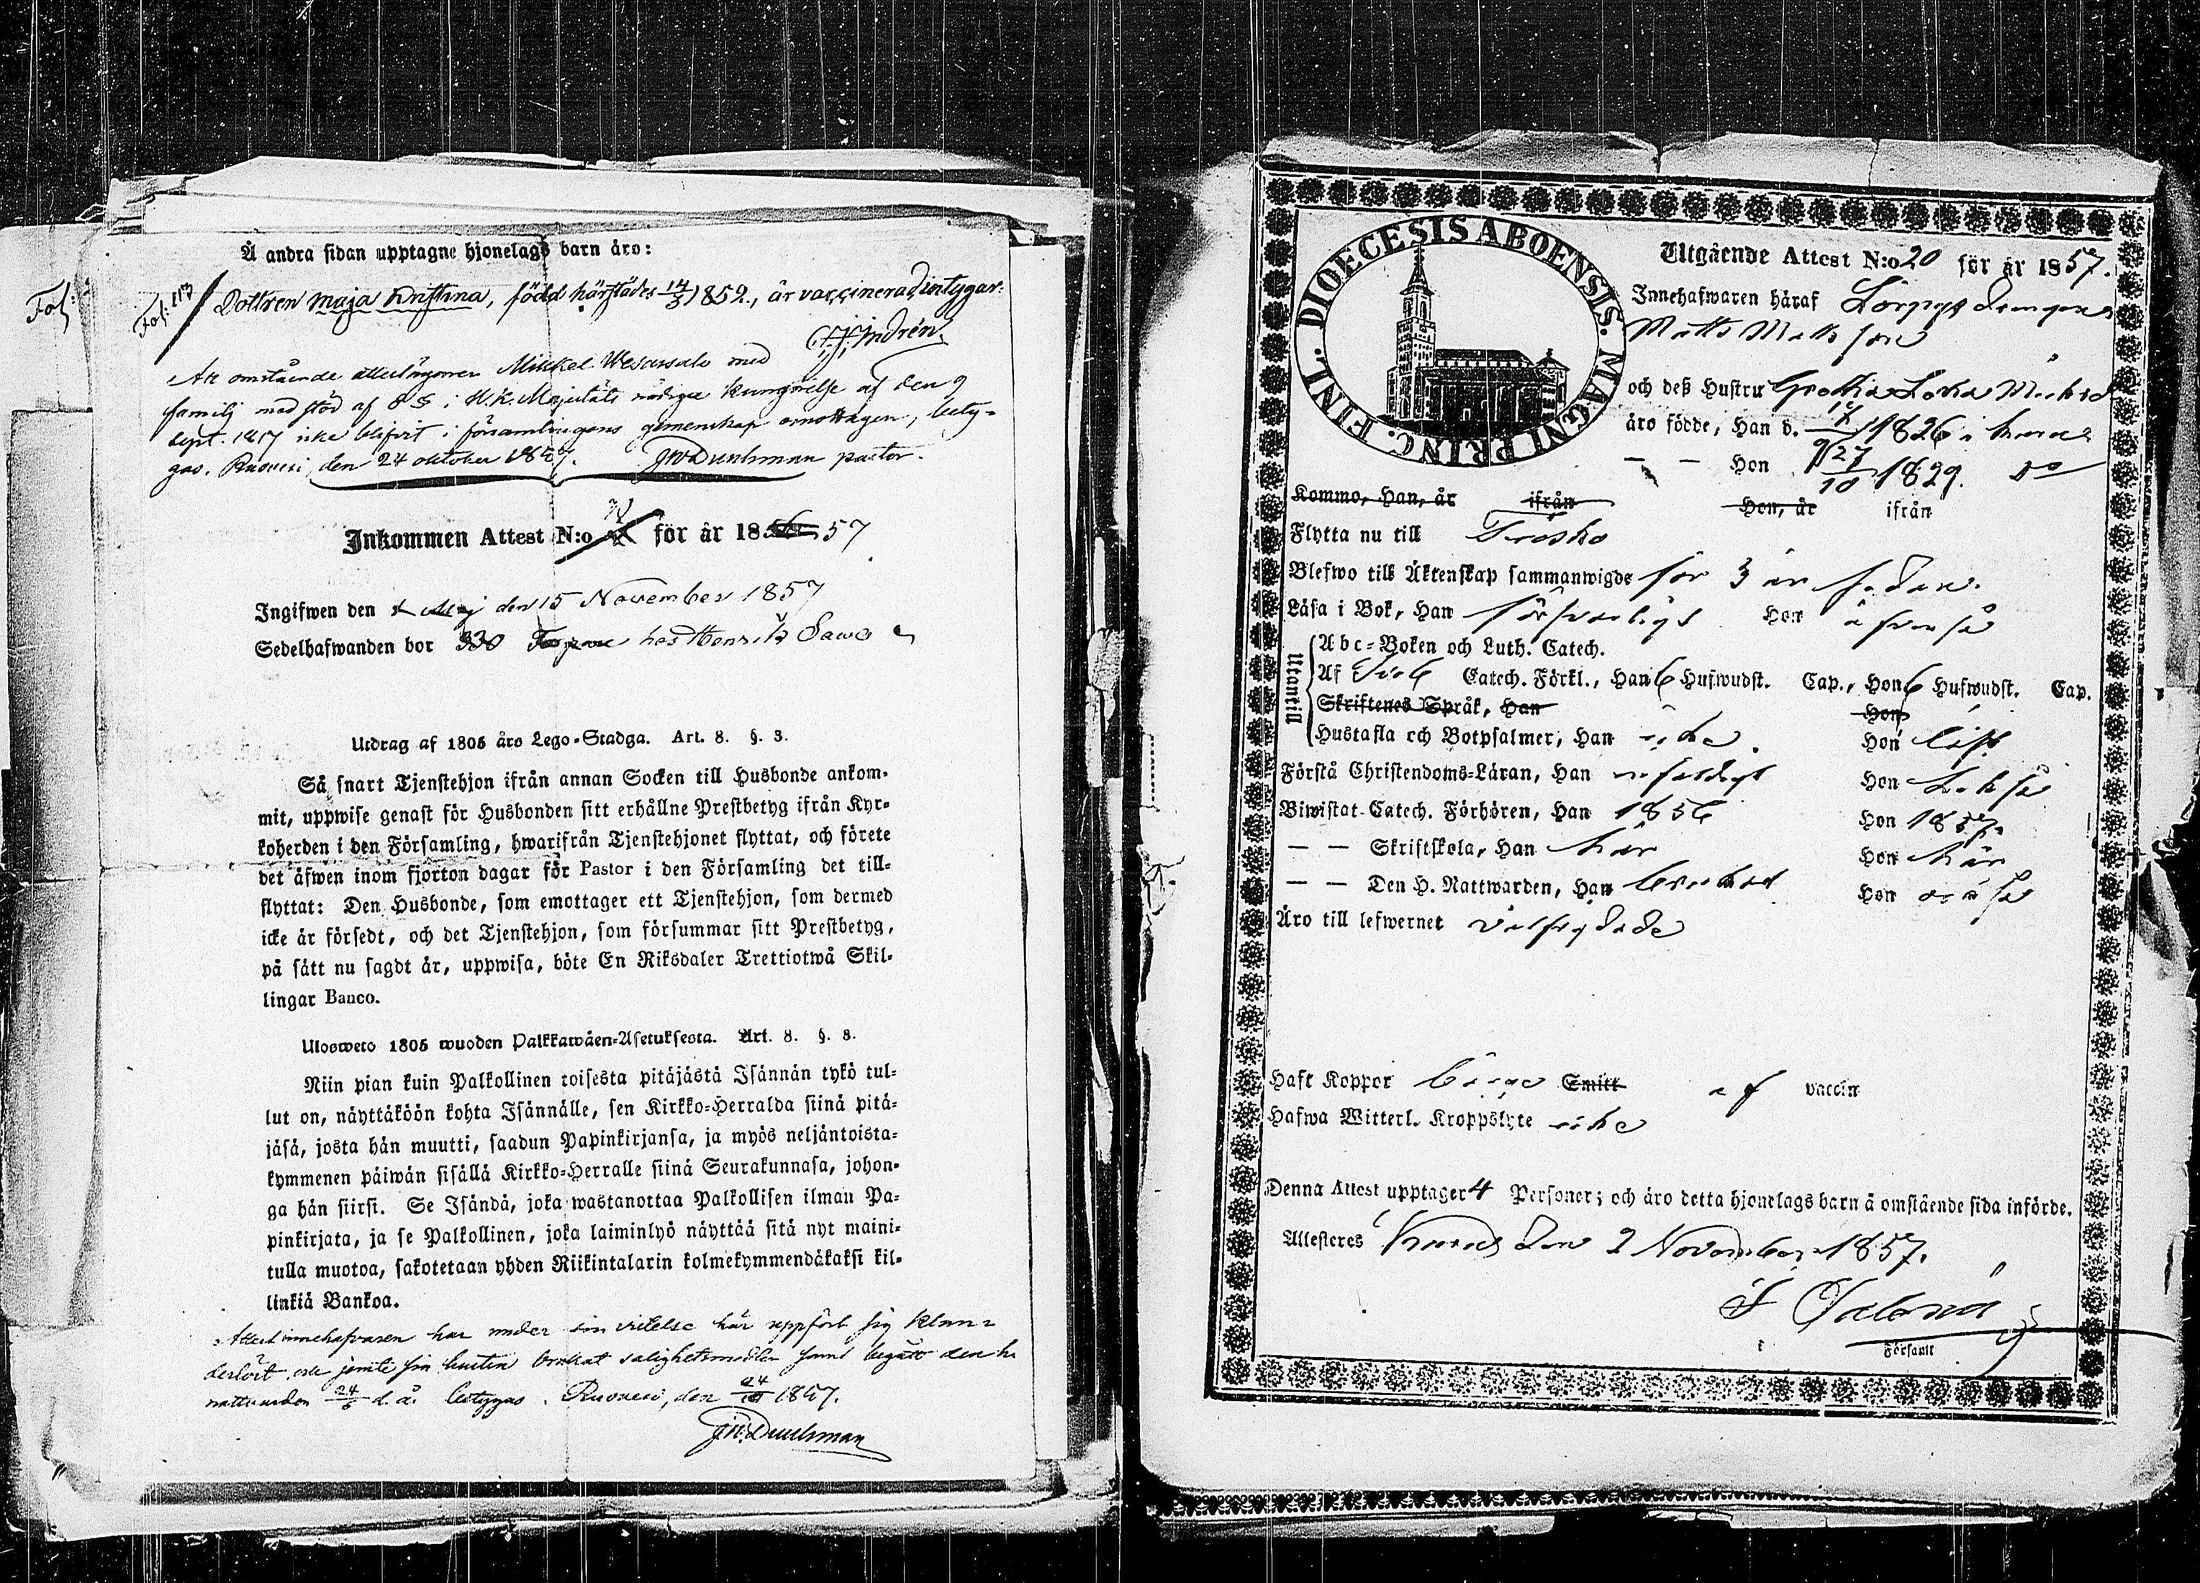 Å andra sidan upptagne hjonelags barn äro:
Fol:
Fol: 113
Dottren Maja Kristina, född härstädes 14/3 1852, är vaccinerad, intygar:
Att omstående attestinnehafvaren Mikkel Wesasalo med
familj med stöd af 8 § i H.K. Majestäts nådiga kungörelse af den 9
sept. 1817 icke blifvit i församlingens gemenskap emottagen, bety-
gas. Ruovesi, den 24 oktober 1857. pastor.
Inkommen Attest N:o för år 18 57
Ingifwen den den 15 November 1857
Sedelhafwanden bor hos Henrik
Utdrag af 1805 års Lego-Stadga. Art. 8. §. 3.
Så snart Tjenstehjon ifrån annan Socken till Husbonde ankom-
mit, uppwise genast för Husbonden sitt erhållne Prestbetyg ifrån Kyr-
koherden i den Församling, hwarifrån Tjenstehjonet flyttat, och förete
det äfwen inom fjorton dagar för Pastor i den Församling det till-
flyttat: Den Husbonde, som emottager ett Tjenstehjon, som dermed
icke är försedt, och det Tjenstehjon, som försummar sitt Prestbetyg,
på sätt nu sagdt är, uppwisa, böte En Riksdaler Trettiotwå Skil-
lingar Banco.
Ulosweto 1805 wuoden Palkkawäen-Asetuksesta. Art. 8. §. 3.
Niin pian kuin Palkollinen toisesta pitäjästä Isännän tykö tul-
lut on, näyttäköön kohta Isännälle, sen Kirkko-Herralda siinä pitä-
jäsä, josta hän muutti, saadun Papinkirjansa, ja myös neljäntoista-
kymmenen päiwän sisällä Kirkko-Herralle siinä Seurakunnasa, johon-
ga hän siirsi. Se Isändä, joka wastanottaa Palkollisen ilman Pa-
pinkirjata, ja se Palkollinen, joka laiminlyö näyttää sitä nyt maini-
tulla muotoa, sakotetaan yhden Riikintalarin kolmekymmendäkaksi kil-
linkiä Bankoa.
Attestinnehafvaren har under sin vistelse här uppfört sig klan-
derlöst, och jemte sin hustru brukat salighetsmedlen samt begått den h.
nattvarden 24/6 d. å. betygas. Ruovesi, den 24/10 1857.
DIOECESIS ABOENSIS. MAGNI PRINC. FINL.
Utgående Attest N:o 20 för år 1857.
Innehafwaren häraf
Matts Matsson
och deß Hustru Lovisa
äro födde, Han d. 1826 i
— — Hon 27/10 1829. do
Kommo, Han, år ifrån Hon, år ifrån
Flytta nu till
Blefwo till Äktenskap sammanwigde för 3 år sedan.
Läsa i Bok, Han försvarligt Hon äfven så
Utantill
Abc-Boken och Luth. Catech.
Af Catech. Förkl., Han 6 Hufwudst. Cap., Hon 6 Hufwudst. Cap.
Skriftenes Språk, Han Hon
Hustafla och Botpsalmer, Han icke. Hon
Förstå Christendoms-Läran, Han enfaldigt Hon
Biwistat Catech. Förhören, Han 1856 Hon 1857.
— — Skriftskola, Han här Hon här
— — Den H. Nattwarden, Han Hon
Äro till lefwernet välfrejdade
Haft Koppor Begge Smitt af vaccin
Hafwa Witterl. Kroppslyte icke
Denna Attest upptager 4 Personer; och äro detta hjonelags barn å omstående sida införde.
Attesteras den 2 November 1857.
Församl.